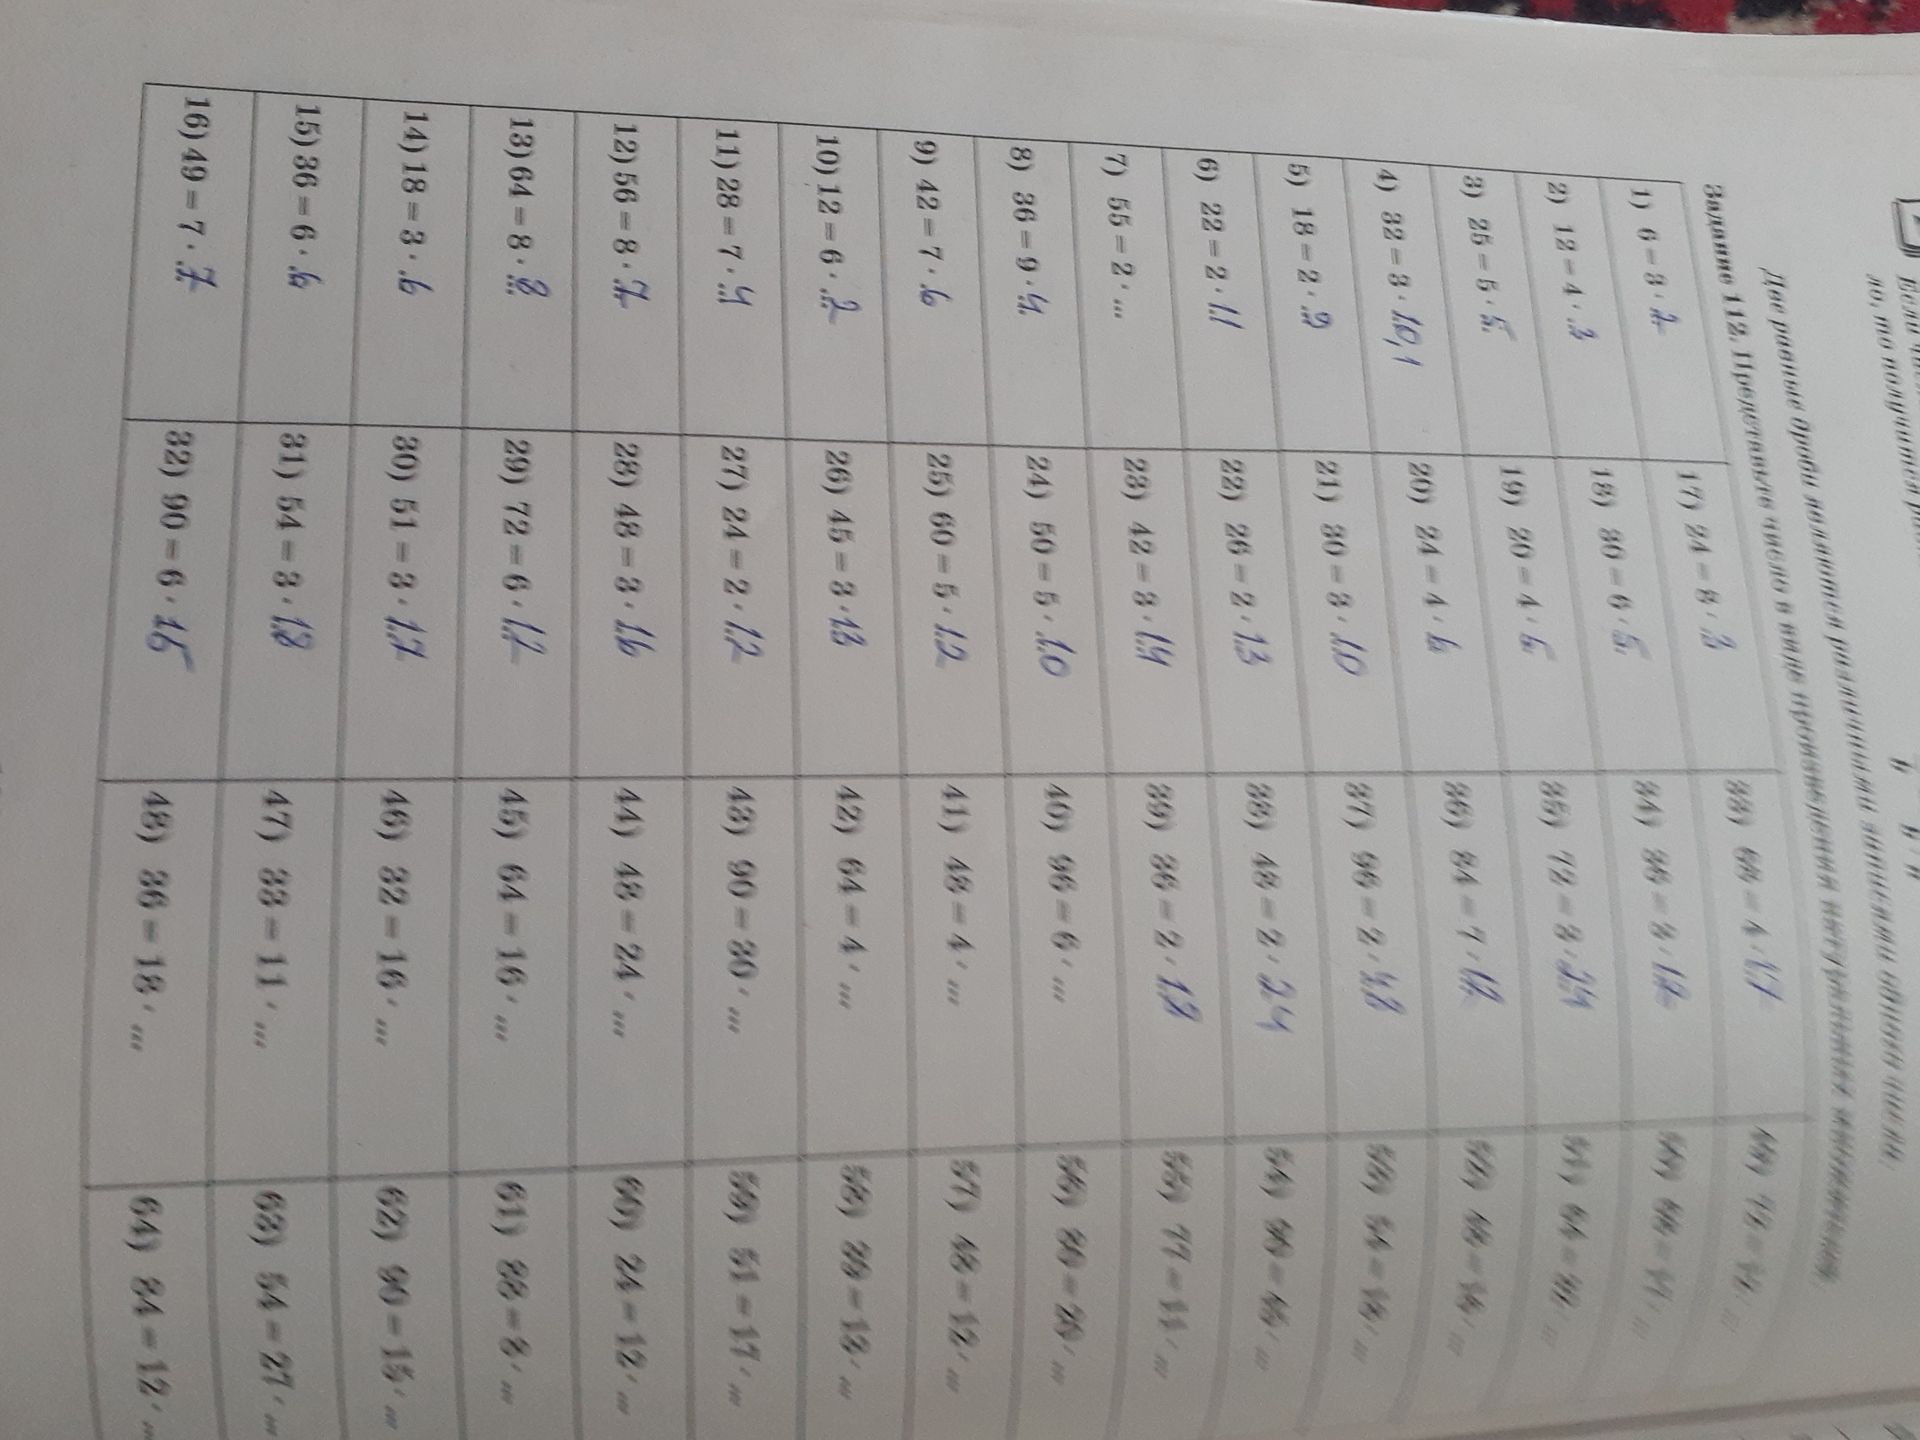 Если чис
но, то получится р
Две равные дроби являются различными записями одного числа.
Задание 112. Представьте число в виде произведения натуральных множителей.
1) 6 = 3 · 2
17) 24 = 8 · 3
33) 68 = 4 · 17
2) 12 = 4 · 3
18) 30 = 6 · 5
34) 36 = 3 · 12
3) 25 = 5 · 5
19) 20 = 4 · 5
35) 72 = 3 · 24
51) 64 =
4) 32 = 3 · 10,1
20) 24 = 4 · 6
36) 84 = 7 · 12
5) 18 = 2 · 9
21) 30 = 3 · 10
37) 96 = 2 · 48
53) 54 = 18 · ...
6) 22 = 2 · 11
22) 26 = 2 · 13
38) 48 = 2 · 24
7) 55 = 2 · ...
23) 42 = 3 · 14
39) 36 = 2 · 19
55) 77 = 11 · ...
8) 36 = 9 · 4
24) 50 = 5 · 10
40) 96 = 6 · ...
9) 42 = 7 · 6
25) 60 = 5 · 12
41) 48 = 4 · ...
57) 48 = 12 · ...
10) 12 = 6 · 2
26) 45 = 3 · 13
42) 64 = 4 · ...
11) 28 = 7 · 4
27) 24 = 2 · 12
43) 90 = 30 · ...
59) 51 = 17 · ...
12) 56 = 8 · 7
28) 48 = 3 · 16
44) 48 = 24 · ...
60) 24 = 12 · ...
13) 64 = 8 · 8
29) 72 = 6 · 12
45) 64 = 16 · ...
61) 88 = 8 · ...
14) 18 = 3 · 6
30) 51 = 3 · 17
46) 32 = 16 · ...
62) 90 = 15 · ...
15) 36 = 6 · 6
31) 54 = 3 · 18
47) 33 = 11 · ...
63) 54 = 27 · ...
16) 49 = 7 · 7
32) 90 = 6 · 15
48) 36 = 18 · ...
64) 84 = 12 · ...